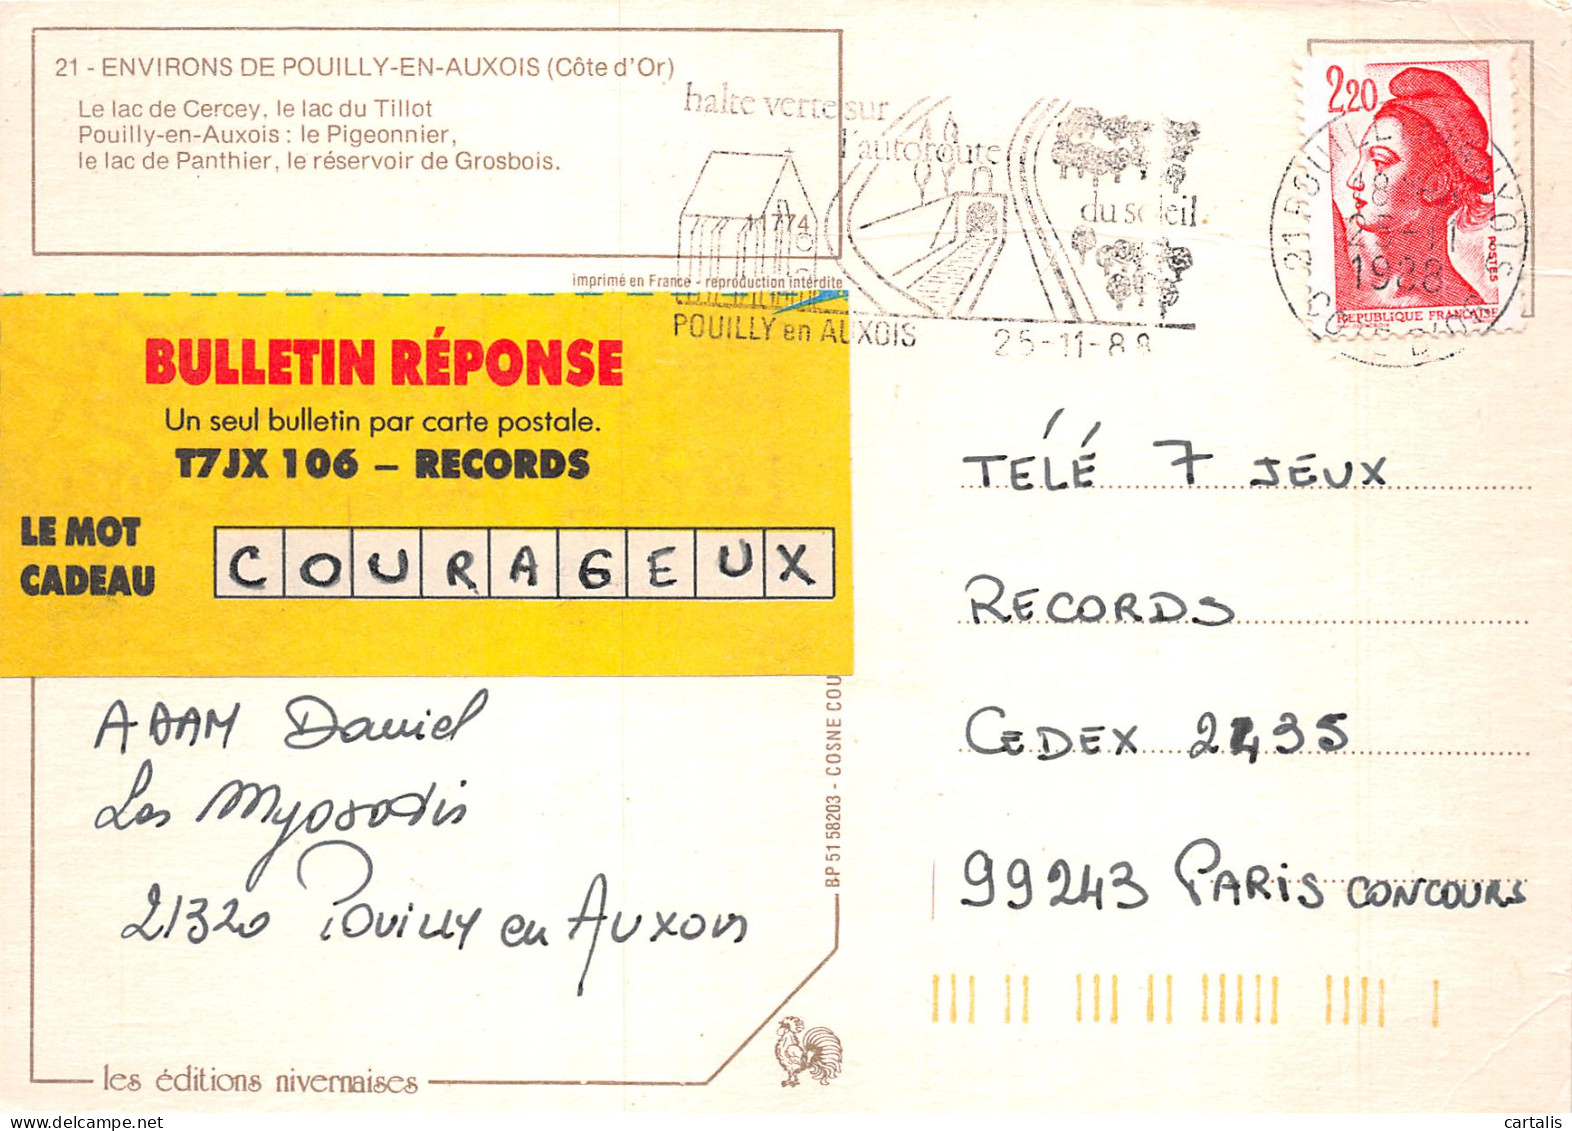 21 - ENVIRONS DE POUILLY-EN-AUXOIS (Côte d'Or)
Le lac de Cercey, le lac du Tillot
Pouilly-en-Auxois : le Pigeonnier,
le lac de Panthier, le réservoir de Grosbois.
11774
imprimé en France - reproduction interdite
halte verte sur
l'autoroute
du soleil
POUILLY en AUXOIS
25-11-88
2,20
POSTES
REPUBLIQUE FRANÇAISE
1988
BULLETIN RÉPONSE
Un seul bulletin par carte postale.
T7JX 106 – RECORDS
LE MOT
CADEAU
COURAGEUX
ADAM Daniel
Les Myosotis
21320 Pouilly en Auxois
TÉLÉ 7 JEUX
RECORDS
CEDEX 2435
99243 PARIS CONCOURS
BP 51 58203 - COSNE COU
les éditions nivernaises
cartalis